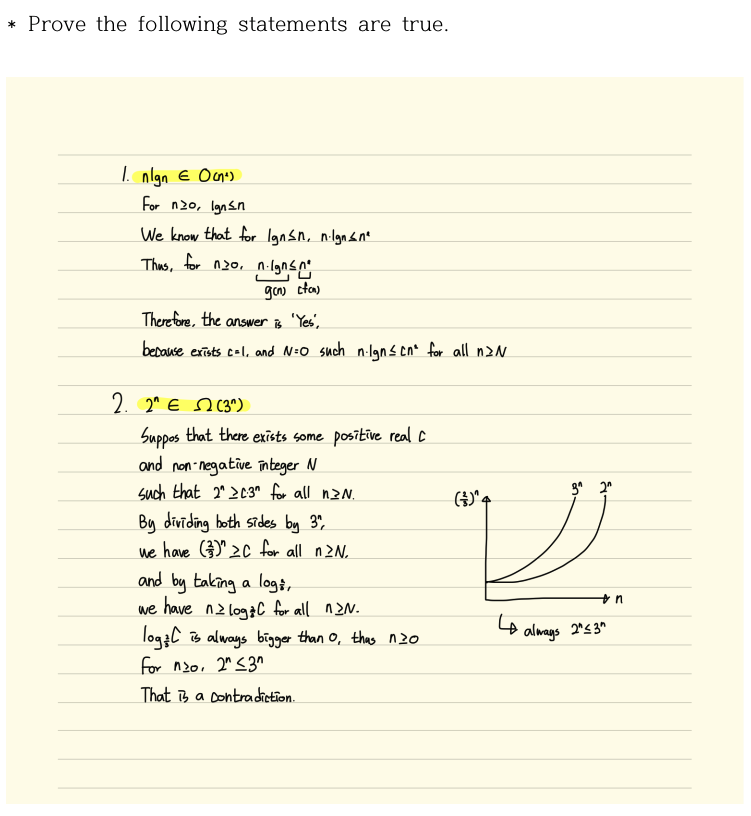 * Prove the following statements are true.
1. nlgn ∈ O(n²)
For n≥0, lgn≤n
We know that for lgn≤n, n·lgn≤n²
Thus, for n≥0, n·lgn≤n²
g(n) cf(n)
Therefore, the answer is 'Yes',
because exists c=1, and N=0 such n·lgn≤cn² for all n≥N
2. 2ⁿ ∈ Ω(3ⁿ)
Suppos that there exists some positive real C
and non-negative integer N
such that 2ⁿ ≥C·3ⁿ for all n≥N.
By dividing both sides by 3ⁿ,
we have (2/3)ⁿ ≥C for all n≥N.
and by taking a log2/3,
we have n≥log2/3C for all n≥N.
log2/3C is always bigger than 0, thus n≥0
For n≥0, 2ⁿ ≤3ⁿ
That is a contradiction.
(2/3)ⁿ
3ⁿ 2ⁿ
n
↳ always 2ⁿ≤3ⁿ